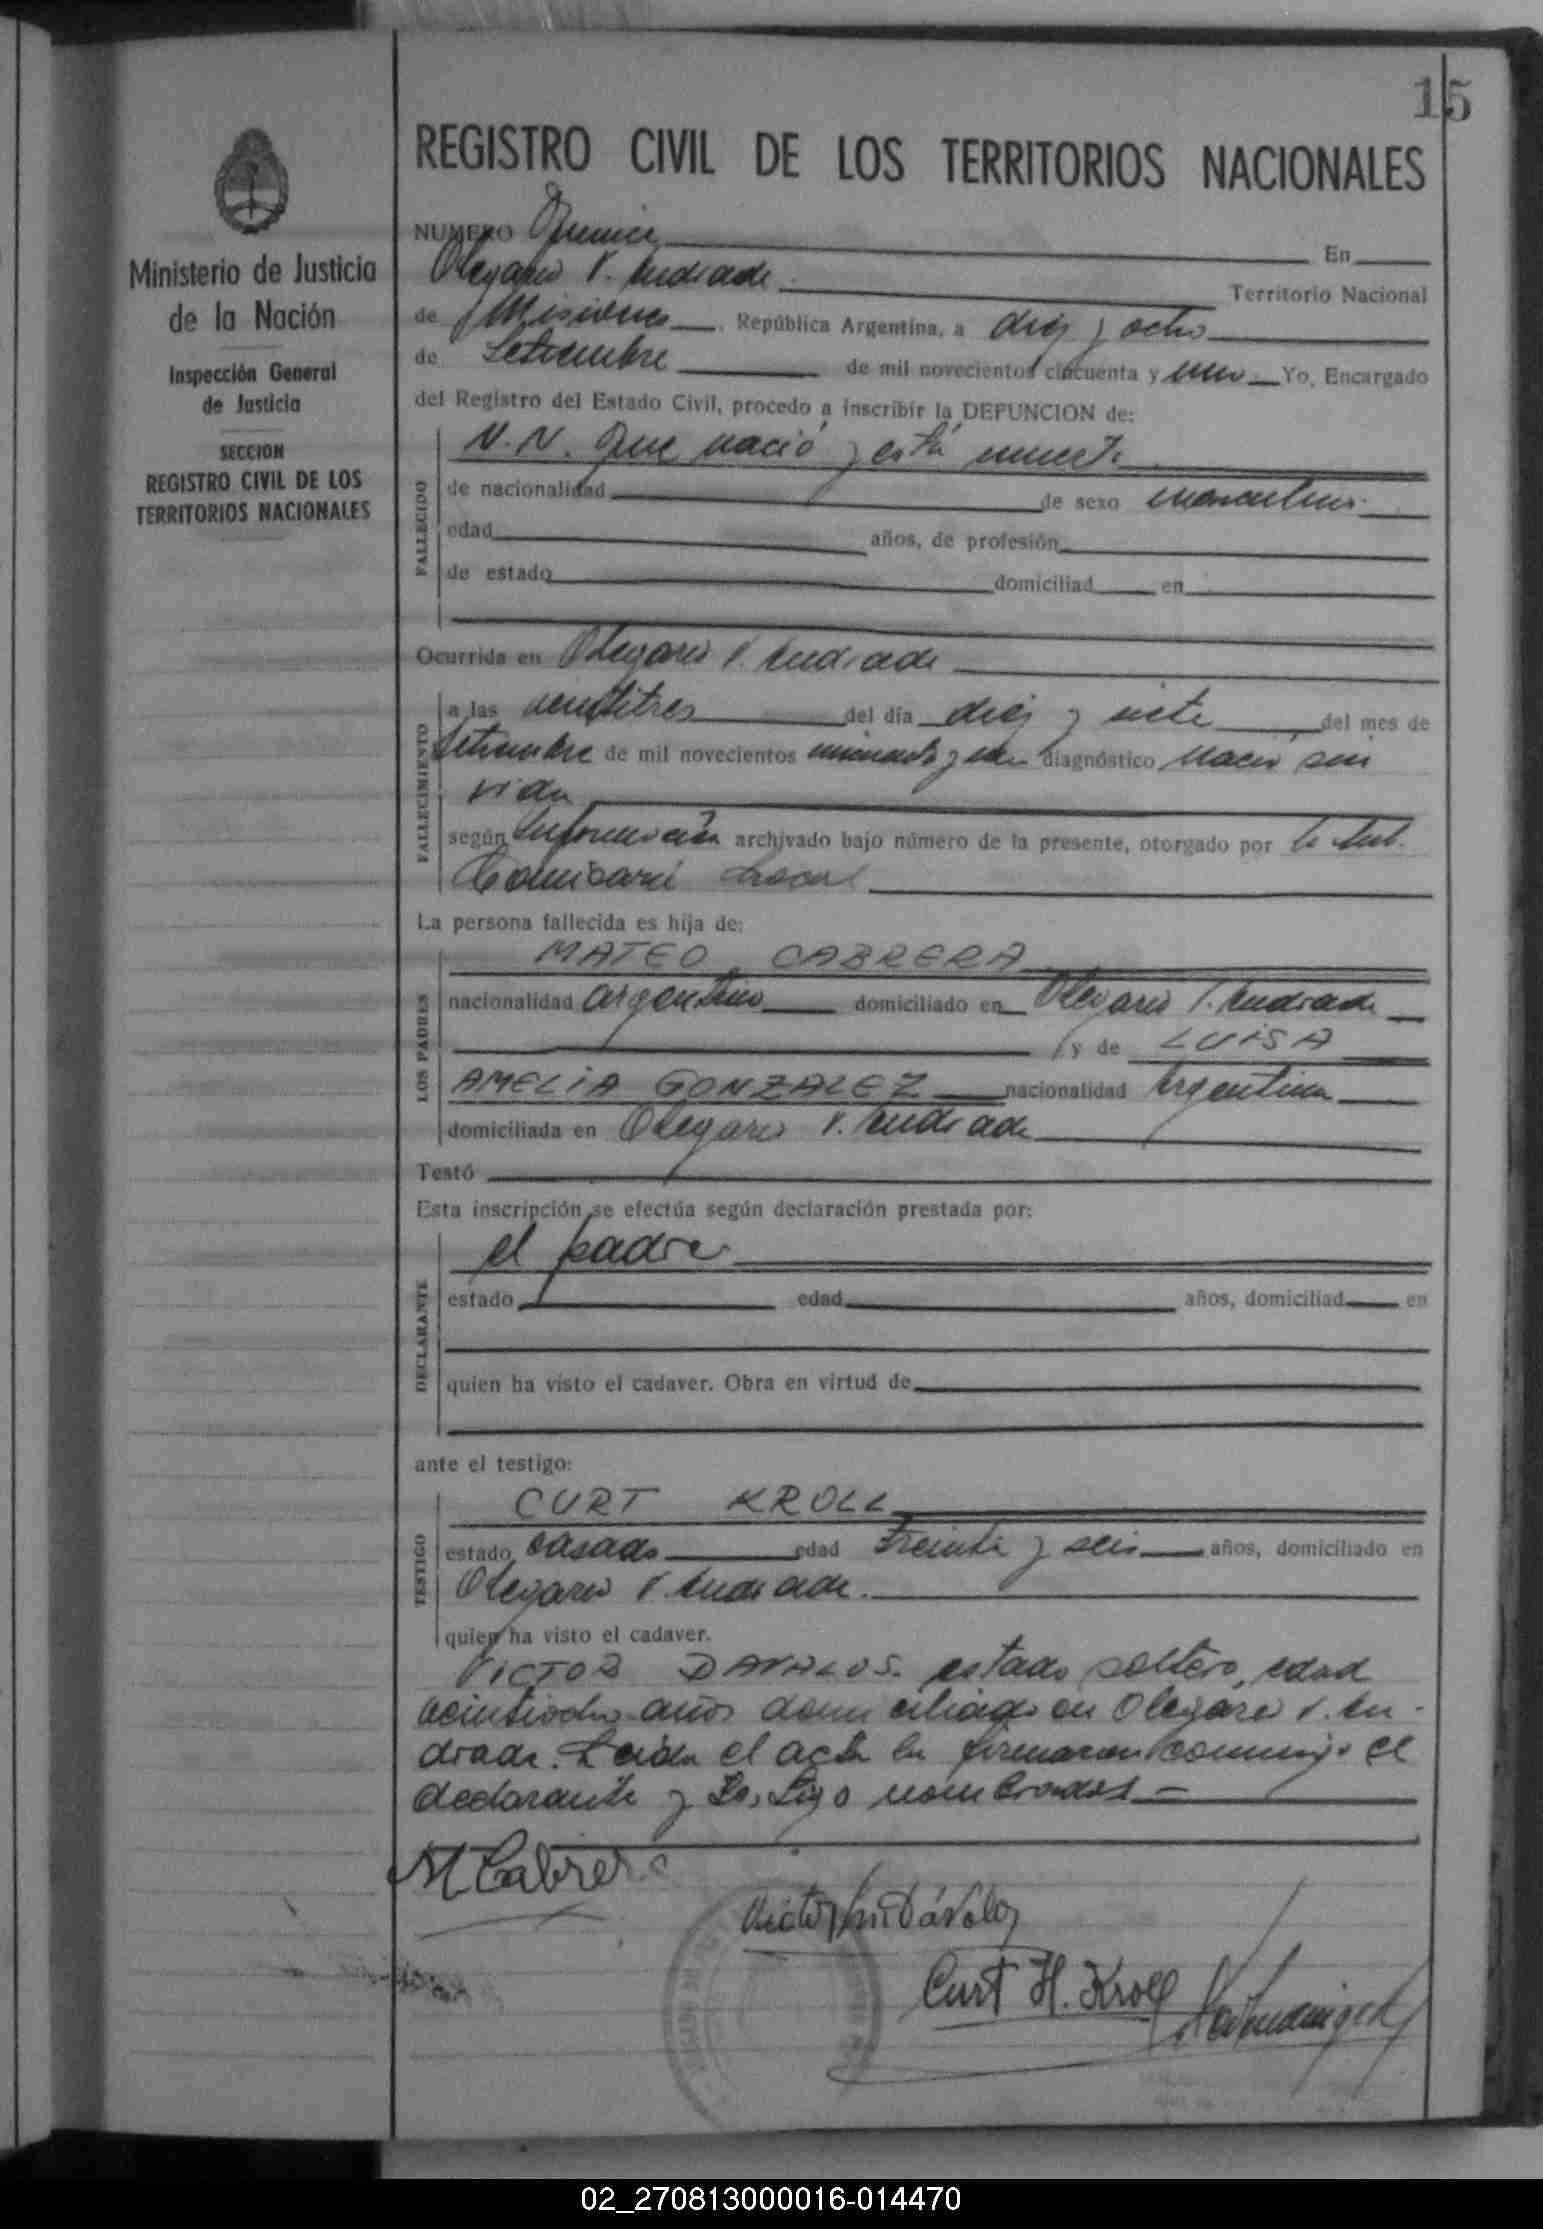 15
Ministerio de Justicia
de la Nación
Inspección General
de Justicia
SECCION
REGISTRO CIVIL DE LOS
TERRITORIOS NACIONALES
REGISTRO CIVIL DE LOS TERRITORIOS NACIONALES
NUMERO Quince En
Olegario V. Andrade Territorio Nacional
de Misiones, República Argentina, a diez y ocho
de Setiembre de mil novecientos cincuenta y uno Yo, Encargado
del Registro del Estado Civil, procedo a inscribir la DEFUNCION de:
N.N. Que nació y está muerto
FALLECIDO
de nacionalidad de sexo masculino.
edad años, de profesión
de estado domiciliad en
Ocurrida en Olegario V. Andrade
FALLECIMIENTO
a las veintitres del día diez y siete del mes de
Setiembre de mil novecientos cincuenta y uno diagnóstico Nació sin
vida
según Información archivado bajo número de la presente, otorgado por la Sub.
Comisaría Local
La persona fallecida es hija de:
LOS PADRES
MATEO CABRERA
nacionalidad argentino domiciliado en Olegario V. Andrade
y de LUISA
AMELIA GONZALEZ nacionalidad Argentina
domiciliada en Olegario V. Andrade
Testó
Esta inscripción se efectúa según declaración prestada por:
DECLARANTE
el padre
estado edad años, domiciliad en
quien ha visto el cadaver. Obra en virtud de
ante el testigo:
TESTIGO
CURT KROLL
estado casado edad Treinta y seis años, domiciliado en
Olegario V. Andrade.
quien ha visto el cadaver.
VICTOR DAVALOS. estado soltero, edad
veintiocho años domiciliado en Olegario V. An-
drade. Leída el acta la firmaron conmigo el
declarante y testigo nombrados.—
M Cabrera
Dávalos
Curt H. Kroll
02_270813000016-014470